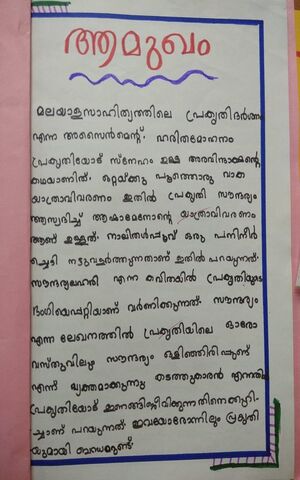 ആമുഖം
മലയാളസാഹിത്യത്തിലെ പ്രകൃതിദർശനം
എന്ന അസൈൻമെന്റ്. ഹരിതമോഹനം
പ്രകൃതിയോട് സ്നേഹം ഉള്ള അരവിന്ദാക്ഷന്റെ
കഥയാണിത്. ഒറ്റയ്ക്കു പൂത്തൊരു വാക
യാത്രാവിവരണം ഇതിൽ പ്രകൃതി സൗന്ദര്യം
ആസ്വദിച്ച് ആഷാമേനോന്റെ യാത്രാവിവരണം
ആണ് ഉള്ളത്. നാലിതൾപ്പൂവ് ഒരു പനിനീർ
ച്ചെടി നട്ടുവളർത്തുന്നതാണ് ഇതിൽ പറയുന്നത്.
സൗന്ദര്യലഹരി എന്ന കവിതയിൽ പ്രകൃതിയുടെ
ഭംഗിയെപ്പറ്റിയാണ് വർണിക്കുന്നത്. സൗന്ദര്യം
എന്ന ലേഖനത്തിൽ പ്രകൃതിയിലെ ഓരോ
വസ്തുവിലും സൗന്ദര്യം ഒളിഞ്ഞിരിപ്പുണ്ട്
എന്ന് വ്യക്തമാക്കുന്നു കടത്തുകാരൻ എന്നതിൽ
പ്രകൃതിയോട് ഇണങ്ങിജീവിക്കുന്നതിനെക്കുറി-
ച്ചാണ് പറയുന്നത്. ഇവയോരോന്നിലും പ്രകൃതി
യുമായി ബന്ധമുണ്ട്.